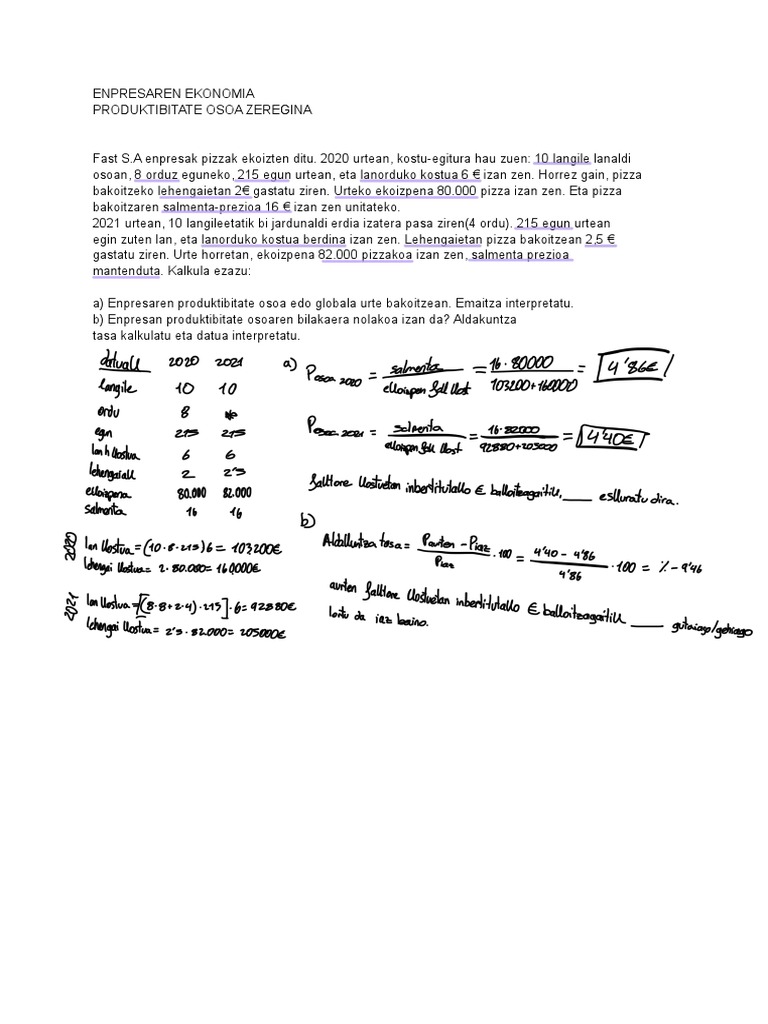 ENPRESAREN EKONOMIA
PRODUKTIBITATE OSOA ZEREGINA
Fast S.A enpresak pizzak ekoizten ditu. 2020 urtean, kostu-egitura hau zuen: 10 langile lanaldi
osoan, 8 orduz eguneko, 215 egun urtean, eta lanorduko kostua 6 € izan zen. Horrez gain, pizza
bakoitzeko lehengaietan 2€ gastatu ziren. Urteko ekoizpena 80.000 pizza izan zen. Eta pizza
bakoitzaren salmenta-prezioa 16 € izan zen unitateko.
2021 urtean, 10 langileetatik bi jardunaldi erdia izatera pasa ziren(4 ordu). 215 egun urtean
egin zuten lan, eta lanorduko kostua berdina izan zen. Lehengaietan pizza bakoitzean 2,5 €
gastatu ziren. Urte horretan, ekoizpena 82.000 pizzakoa izan zen, salmenta prezioa
mantenduta. Kalkula ezazu:
a) Enpresaren produktibitate osoa edo globala urte bakoitzean. Emaitza interpretatu.
b) Enpresan produktibitate osoaren bilakaera nolakoa izan da? Aldakuntza
tasa kalkulatu eta datua interpretatu.
datuak 2020 2021
langile 10 10
ordu 8
egun 215 215
lan h kostua 6 6
lehengaiak 2 2'5
ekoizpena 80.000 82.000
salmenta 16 16
2020
lan kostua = (10·8·215)6 = 103200€
lehengai kostua = 2·80.000 = 160000€
2021
lan kostua = [(8·8+2·4)·215]·6 = 92880€
lehengai kostua = 2'5·82.000 = 205000€
a) P osoa 2020 = salmenta / ekoizpen fak kost = 16·80000 / 103200+160000 = 4'86€
P osoa 2021 = salmenta / ekoizpen fak kost = 16·82000 / 92880+205000 = 4'40€
faktore kostuetan inbertitutako € bakoitzagaitik, ____ eskuratu dira.
b)
Aldakuntza tasa = Paurten - Piaz / Piaz · 100 = 4'40 - 4'86 / 4'86 · 100 = % -9'46
aurten faktore kostuetan inbertitutako € bakoitzagaitik ____ gutxiago/gehiago
lortu da iaz baino.